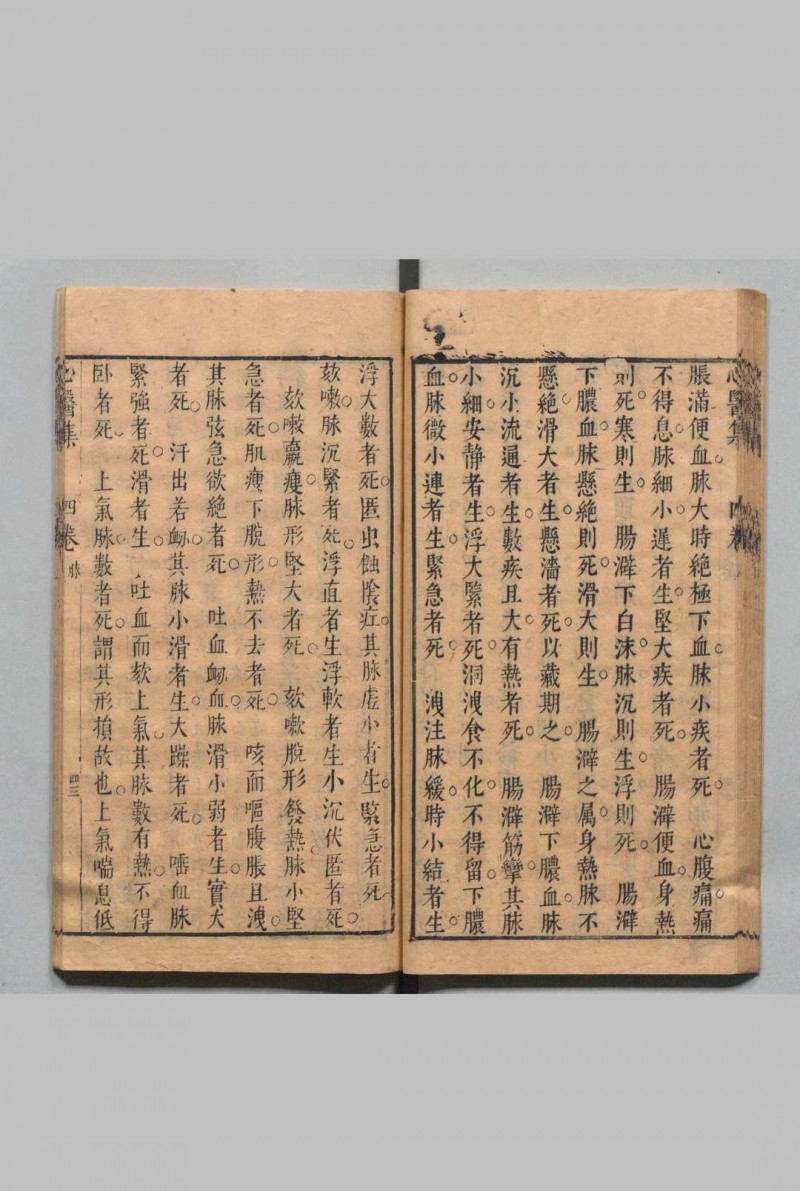 心醫集 四卷
脹滿便血脉大時絶極下血脉小疾者死。 心腹痛痛
不得息脉細小遲者生。堅大疾者死。 腸澼便血身熱
則死寒則生。 腸澼下白沫脉沉則生。浮則死。 腸澼
下膿血脉懸絶則死。滑大則生。 腸澼之属。身熱脉不
懸絶滑大者生。懸濇者死。以藏期之。 腸澼下膿血脉
沉小流通者生。數疾且大。有熱者死。 腸澼筋攣其脉
小細安静者生。浮大緊者死。洞洩食不化。不得留。下膿
血脉微小連者生。緊急者死。 洩注脉緩。時小結者生。
浮大數者死。匿虫蝕陰疘。其脉虚小者生。緊急者死。
欬嗽脉沉緊者死。浮直者生浮軟者生小沉伏匿者死。
欬嗽羸瘦。脉形堅大者死。 欬嗽脫形發熱。脉小堅
急者死。肌瘦下脫形。熱不去者死。 咳而嘔腹脹且洩。
其脉弦急欲絶者死。 吐血衂血。脉滑小弱者生。實大
者死。 汗出若衂。其脉小滑者生。大躁者死。 唾血脉
緊強者死。滑者生。 吐血而欬上氣。其脉數有熱。不得
卧者死。 上氣脉數者死。謂其形損故也。上氣喘息低
心醫集 四卷 脉 四三